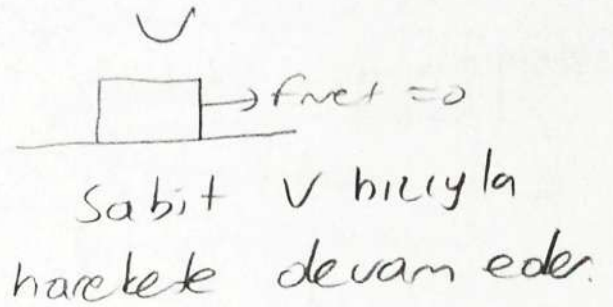 V
Fnet = 0
Sabit V hızıyla
harekete devam eder.